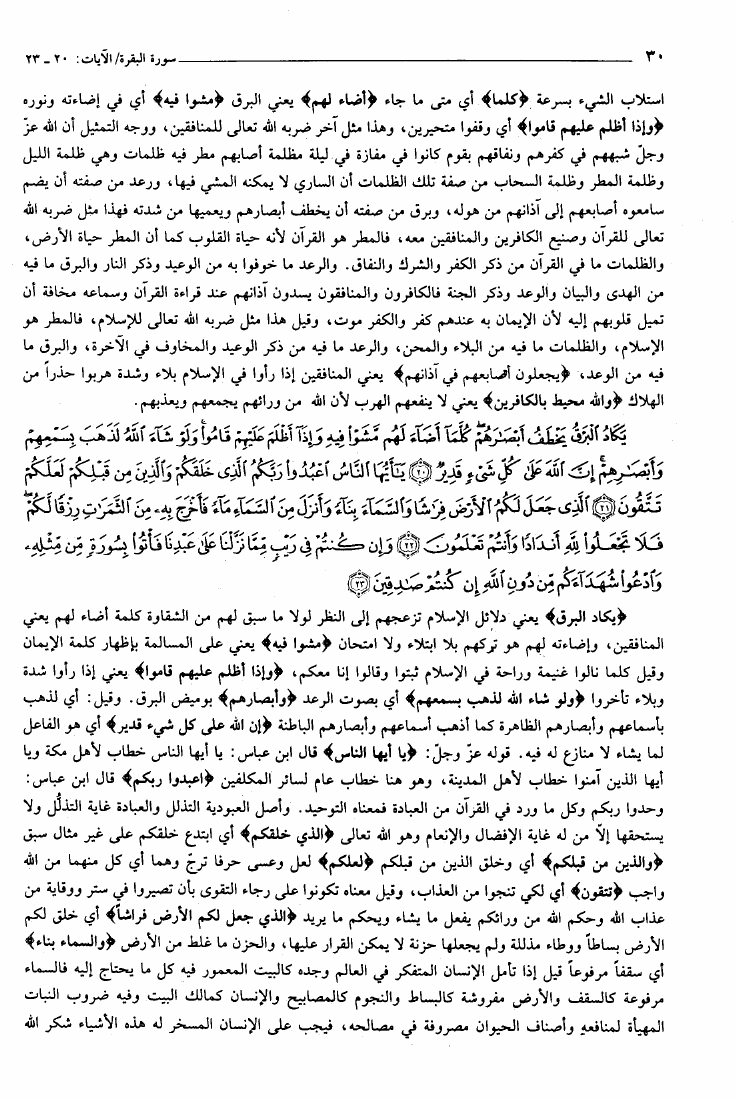 ٣٠ سورة البقرة/ الآيات: ٢٠ ـ ٢٣
استلاب الشيء بسرعة ﴿كلما﴾ أي متى ما جاء ﴿أضاء لهم﴾ يعني البرق ﴿مشوا فيه﴾ أي في إضاءته ونوره
﴿وإذا أظلم عليهم قاموا﴾ أي وقفوا متحيرين، وهذا مثل آخر ضربه الله تعالى للمنافقين، ووجه التمثيل أن الله عزّ
وجلّ شبههم في كفرهم ونفاقهم بقوم كانوا في مفازة في ليلة مظلمة أصابهم مطر فيه ظلمات وهي ظلمة الليل
وظلمة المطر وظلمة السحاب من صفة تلك الظلمات أن الساري لا يمكنه المشي فيها، ورعد من صفته أن يضم
سامعوه أصابعهم إلى آذانهم من هوله، وبرق من صفته أن يخطف أبصارهم ويعميها من شدته فهذا مثل ضربه الله
تعالى للقرآن وصنيع الكافرين والمنافقين معه، فالمطر هو القرآن لأنه حياة القلوب كما أن المطر حياة الأرض،
والظلمات ما في القرآن من ذكر الكفر والشرك والنفاق. والرعد ما خوفوا به من الوعيد وذكر النار والبرق ما فيه
من الهدى والبيان والوعد وذكر الجنة فالكافرون والمنافقون يسدون آذانهم عند قراءة القرآن وسماعه مخافة أن
تميل قلوبهم إليه لأن الإيمان به عندهم كفر والكفر موت، وقيل هذا مثل ضربه الله تعالى للإسلام، فالمطر هو
الإسلام، والظلمات ما فيه من البلاء والمحن، والرعد ما فيه من ذكر الوعيد والمخاوف في الآخرة، والبرق ما
فيه من الوعد، ﴿يجعلون أصابعهم في آذانهم﴾ يعني المنافقين إذا رأوا في الإسلام بلاء وشدة هربوا حذراً من
الهلاك ﴿والله محيط بالكافرين﴾ يعني لا ينفعهم الهرب لأن الله من ورائهم يجمعهم ويعذبهم.
يَكَادُ الْبَرْقُ يَخْطَفُ أَبْصَارَهُمْ كُلَّمَا أَضَاءَ لَهُم مَّشَوْا فِيهِ وَإِذَا أَظْلَمَ عَلَيْهِمْ قَامُوا وَلَوْ شَاءَ اللَّهُ لَذَهَبَ بِسَمْعِهِمْ
وَأَبْصَارِهِمْ إِنَّ اللَّهَ عَلَىٰ كُلِّ شَيْءٍ قَدِيرٌ ﴿٢٠﴾ يَا أَيُّهَا النَّاسُ اعْبُدُوا رَبَّكُمُ الَّذِي خَلَقَكُمْ وَالَّذِينَ مِن قَبْلِكُمْ لَعَلَّكُمْ
تَتَّقُونَ ﴿٢١﴾ الَّذِي جَعَلَ لَكُمُ الْأَرْضَ فِرَاشًا وَالسَّمَاءَ بِنَاءً وَأَنزَلَ مِنَ السَّمَاءِ مَاءً فَأَخْرَجَ بِهِ مِنَ الثَّمَرَاتِ رِزْقًا لَّكُمْ
فَلَا تَجْعَلُوا لِلَّهِ أَندَادًا وَأَنتُمْ تَعْلَمُونَ ﴿٢٢﴾ وَإِن كُنتُمْ فِي رَيْبٍ مِّمَّا نَزَّلْنَا عَلَىٰ عَبْدِنَا فَأْتُوا بِسُورَةٍ مِّن مِّثْلِهِ
وَادْعُوا شُهَدَاءَكُم مِّن دُونِ اللَّهِ إِن كُنتُمْ صَادِقِينَ ﴿٢٣﴾
﴿يكاد البرق﴾ يعني دلائل الإسلام تزعجهم إلى النظر لولا ما سبق لهم من الشقاوة كلمة أضاء لهم يعني
المنافقين، وإضاءته لهم هو تركهم بلا ابتلاء ولا امتحان ﴿مشوا فيه﴾ يعني على المسالمة بإظهار كلمة الإيمان
وقيل كلما نالوا غنيمة وراحة في الإسلام ثبتوا وقالوا إنا معكم، ﴿وإذا أظلم عليهم قاموا﴾ يعني إذا رأوا شدة
وبلاء تأخروا ﴿ولو شاء الله لذهب بسمعهم﴾ أي بصوت الرعد ﴿وأبصارهم﴾ بوميض البرق. وقيل: أي لذهب
بأسماعهم وأبصارهم الظاهرة كما أذهب أسماعهم وأبصارهم الباطنة ﴿إن الله على كل شيء قدير﴾ أي هو الفاعل
لما يشاء لا منازع له فيه. قوله عزّ وجلّ: ﴿يا أيها الناس﴾ قال ابن عباس: يا أيها الناس خطاب لأهل مكة ويا
أيها الذين آمنوا خطاب لأهل المدينة، وهو هنا خطاب عام لسائر المكلفين ﴿اعبدوا ربكم﴾ قال ابن عباس:
وحدوا ربكم وكل ما ورد في القرآن من العبادة فمعناه التوحيد. وأصل العبودية التذلل والعبادة غاية التذلُّل ولا
يستحقها إلاّ من له غاية الإفضال والإنعام وهو الله تعالى ﴿الذي خلقكم﴾ أي ابتدع خلقكم على غير مثال سبق
﴿والذين من قبلكم﴾ أي وخلق الذين من قبلكم ﴿لعلكم﴾ لعل وعسى حرفا ترجّ وهما أي كل منهما من الله
واجب ﴿تتقون﴾ أي لكي تنجوا من العذاب، وقيل معناه تكونوا على رجاء التقوى بأن تصيروا في ستر ووقاية من
عذاب الله وحكم الله من ورائكم يفعل ما يشاء ويحكم ما يريد ﴿الذي جعل لكم الأرض فراشاً﴾ أي خلق لكم
الأرض بساطاً ووطاء مذللة ولم يجعلها حزنة لا يمكن القرار عليها، والحزن ما غلظ من الأرض ﴿والسماء بناء﴾
أي سقفاً مرفوعاً قيل إذا تأمل الإنسان المتفكر في العالم وجده كالبيت المعمور فيه كل ما يحتاج إليه فالسماء
مرفوعة كالسقف والأرض مفروشة كالبساط والنجوم كالمصابيح والإنسان كمالك البيت وفيه ضروب النبات
المهيأة لمنافعه وأصناف الحيوان مصروفة في مصالحه، فيجب على الإنسان المسخر له هذه الأشياء شكر الله